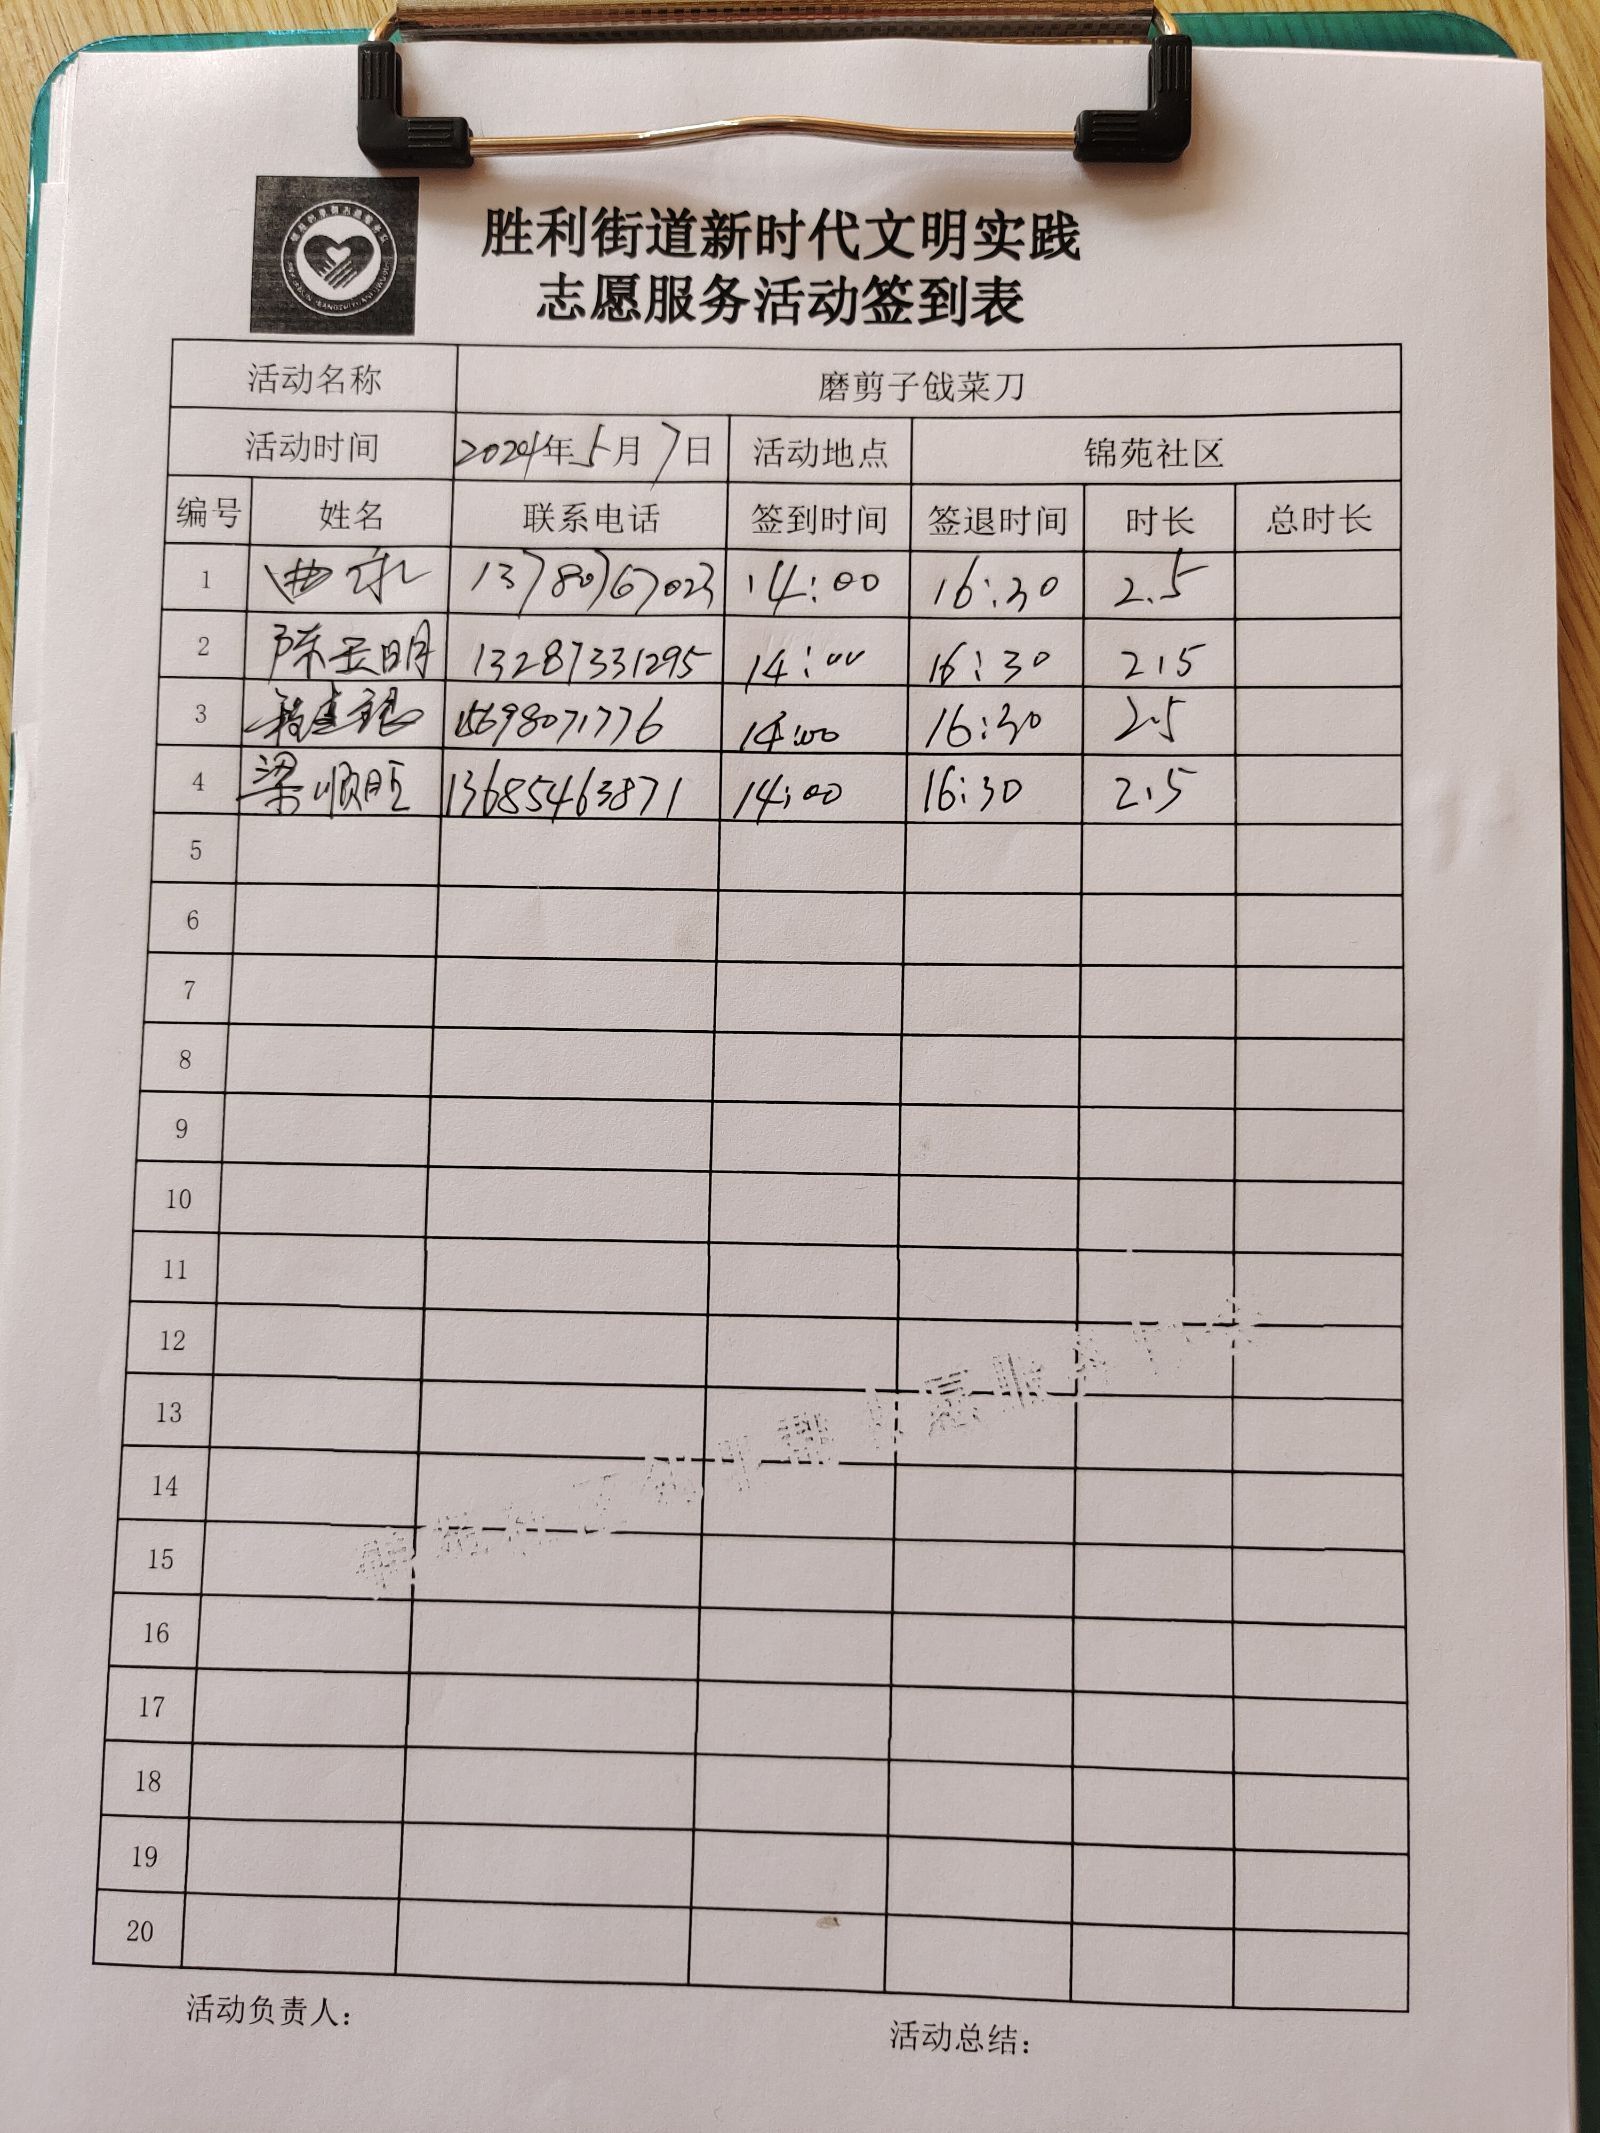 胜利街道新时代文明实践
志愿服务活动签到表
活动名称 磨剪子戗菜刀
活动时间 2024年5月7日 活动地点 锦苑社区
编号 姓名 联系电话 签到时间 签退时间 时长 总时长
1 曲 13780767023 14:00 16:30 2.5
2 陈玉明 13287331295 14:00 16:30 2.5
3 15698071776 14:00 16:30 2.5
4 梁顺旺 13685463871 14:00 16:30 2.5
5
6
7
8
9
10
11
12
13
14
15
16
17
18
19
20
活动负责人：
活动总结：